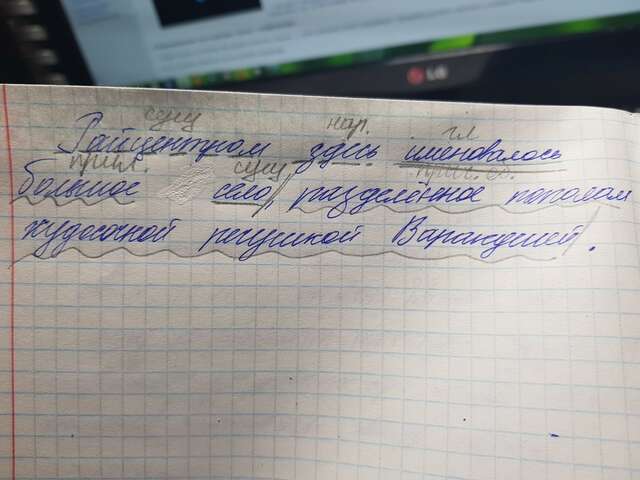 LG
сущ нар. гл
Райцентром здесь именовалось
прил. сущ прич. об.
большое село, разделённое пополам
худосочной речушкой Варандией.